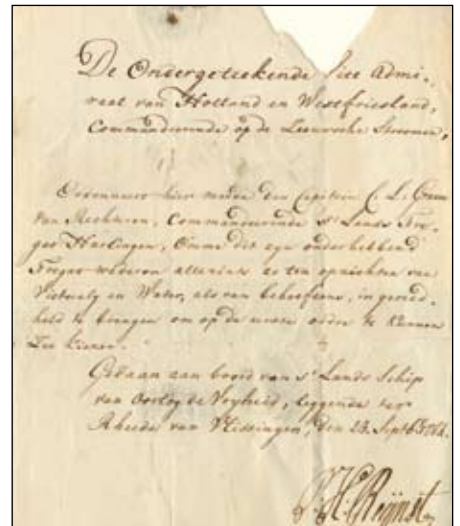 De Ondergetekende Vice Admi-
raal van Holland en Westfriesland,
Commandeerende op de Zeeuwsche Stroomen,
Ordonneert hier mede den Capitein C. L. Graven
van Rechteren, Commandeerende s' Lands Fre-
gat Harlingen, Omme dit zyn onderhebbend
Fregat wederom ten opzichten van
Victualy en Water, als van behoeftens, in gereed-
heid te brengen om op de eerste ordre te kunnen
Zee kiezen.
Gedaan aan boord van s' Lands Schip
van Oorlog de Vryheid, leggende ter
Rheede van Vlissingen, den 23. Sept.
Reijnst